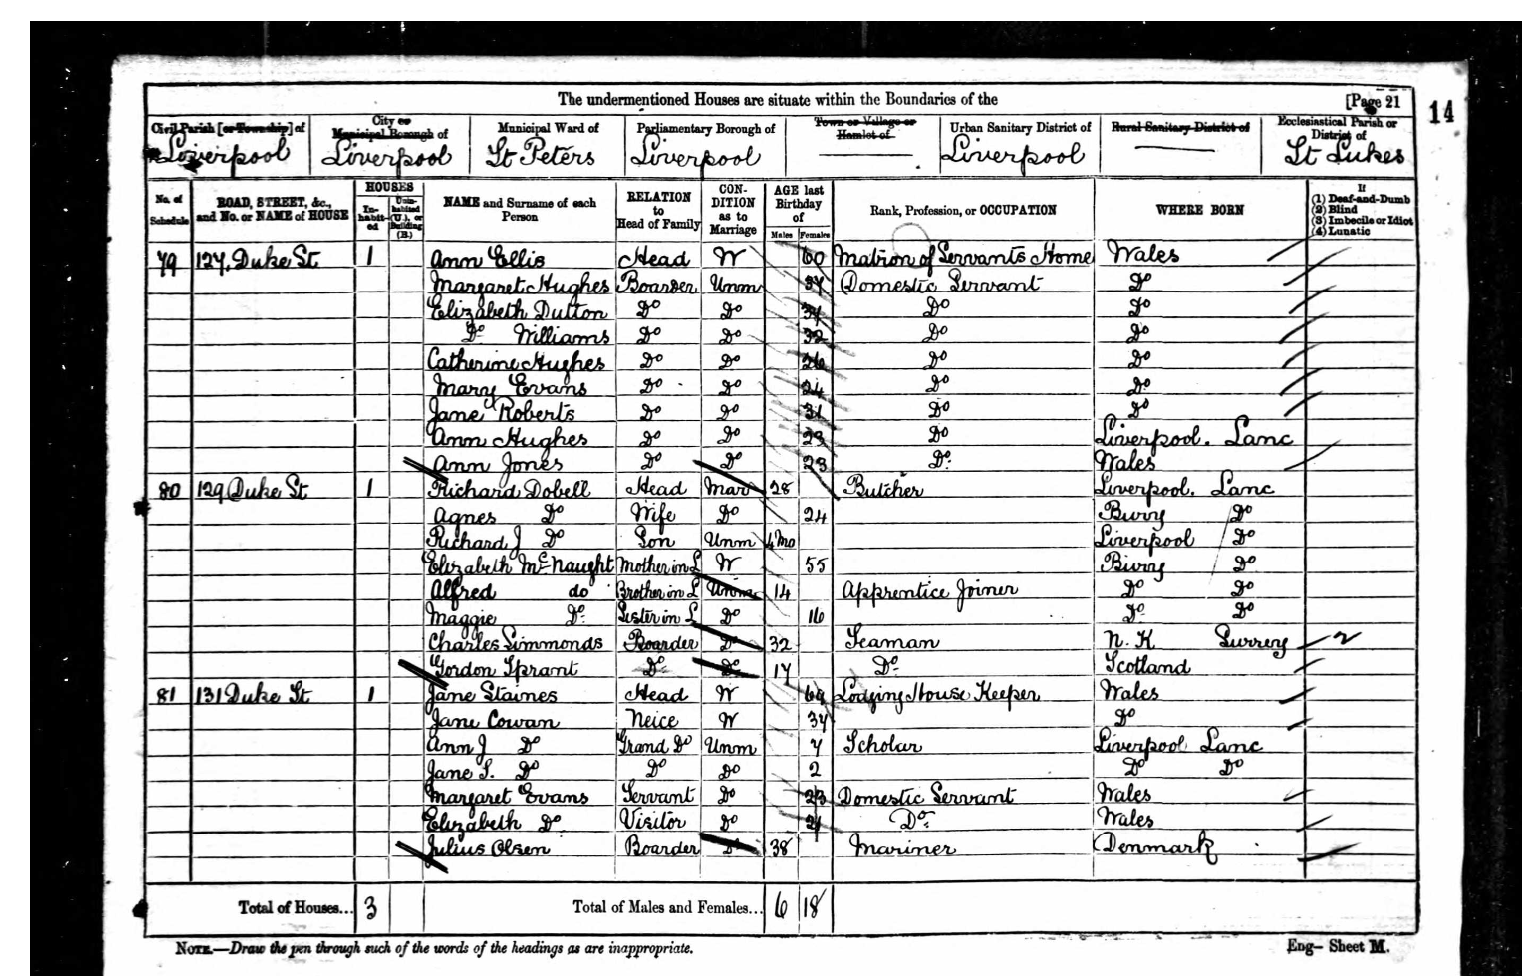 The undermentioned Houses are situate within the Boundaries of the [Page 21
14
Civil Parish [or Township] of City or Municipal Borough of Municipal Ward of Parliamentary Borough of Town or Village or Hamlet of Urban Sanitary District of Rural Sanitary District of Ecclesiastical Parish or District of
Liverpool Liverpool St Peters Liverpool Liverpool St Lukes
No. of Schedule ROAD, STREET, &c., and No. or NAME of HOUSE HOUSES In-habit-ed Unin-habited (U.), or Building (B.) NAME and Surname of each Person RELATION to Head of Family CON-DITION as to Marriage AGE last Birthday of Males Females Rank, Profession, or OCCUPATION WHERE BORN If (1) Deaf-and-Dumb (2) Blind (3) Imbecile or Idiot (4) Lunatic
79 127, Duke St 1 Ann Ellis Head W 60 Matron of Servants Home Wales
Margaret Hughes Boarder Unm Domestic Servant Do
Elizabeth Dutton Do Do 34 Do Do
Do Williams Do Do 32 Do Do
Catherine Hughes Do Do 26 Do Do
Mary Evans Do Do 24 Do Do
Jane Roberts Do Do 31 Do Do
Ann Hughes Do Do 23 Do Liverpool. Lanc
Ann Jones Do Do 23 Do Wales
80 129 Duke St 1 Richard Dobell Head Mar 28 Butcher Liverpool. Lanc
Agnes Do Wife Do 24 Do
Richard J Do Son Unm 4 Mo Liverpool Do
Elizabeth McNaught Mother in L W 55 Do
Alfred do Brother in L Unm 14 Apprentice Joiner Do Do
Maggie Do Sister in L Do 16 Do Do
Charles Simmonds Boarder Do 32 Seaman N. K Surrey
Gordon Sprant Do Do 17 Do Scotland
81 131 Duke St 1 Jane Staines Head W 69 Lodging House Keeper Wales
Jane Cowan Neice W 37 Do
Ann J Do Grand Do Unm 7 Scholar Liverpool Lanc
Jane S. Do Do Do 2 Do Do
Margaret Evans Servant Do 23 Domestic Servant Wales
Elizabeth Do Visitor Do 21 Do Wales
Julius Olsen Boarder Do 38 Mariner Denmark
Total of Houses... 3 Total of Males and Females... 6 18
NOTE.—Draw the pen through such of the words of the headings as are inappropriate. Eng— Sheet M.